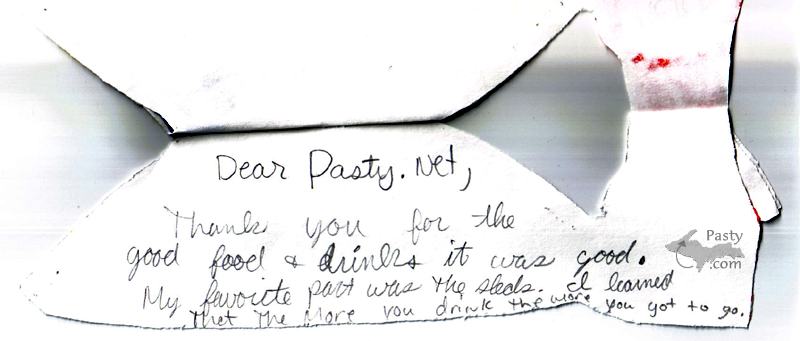 Dear Pasty.Net,
Thank you for the
good food & drinks it was good.
My favorite part was the sleds. I learned
that the more you drink the more you got to go.
Pasty
.com